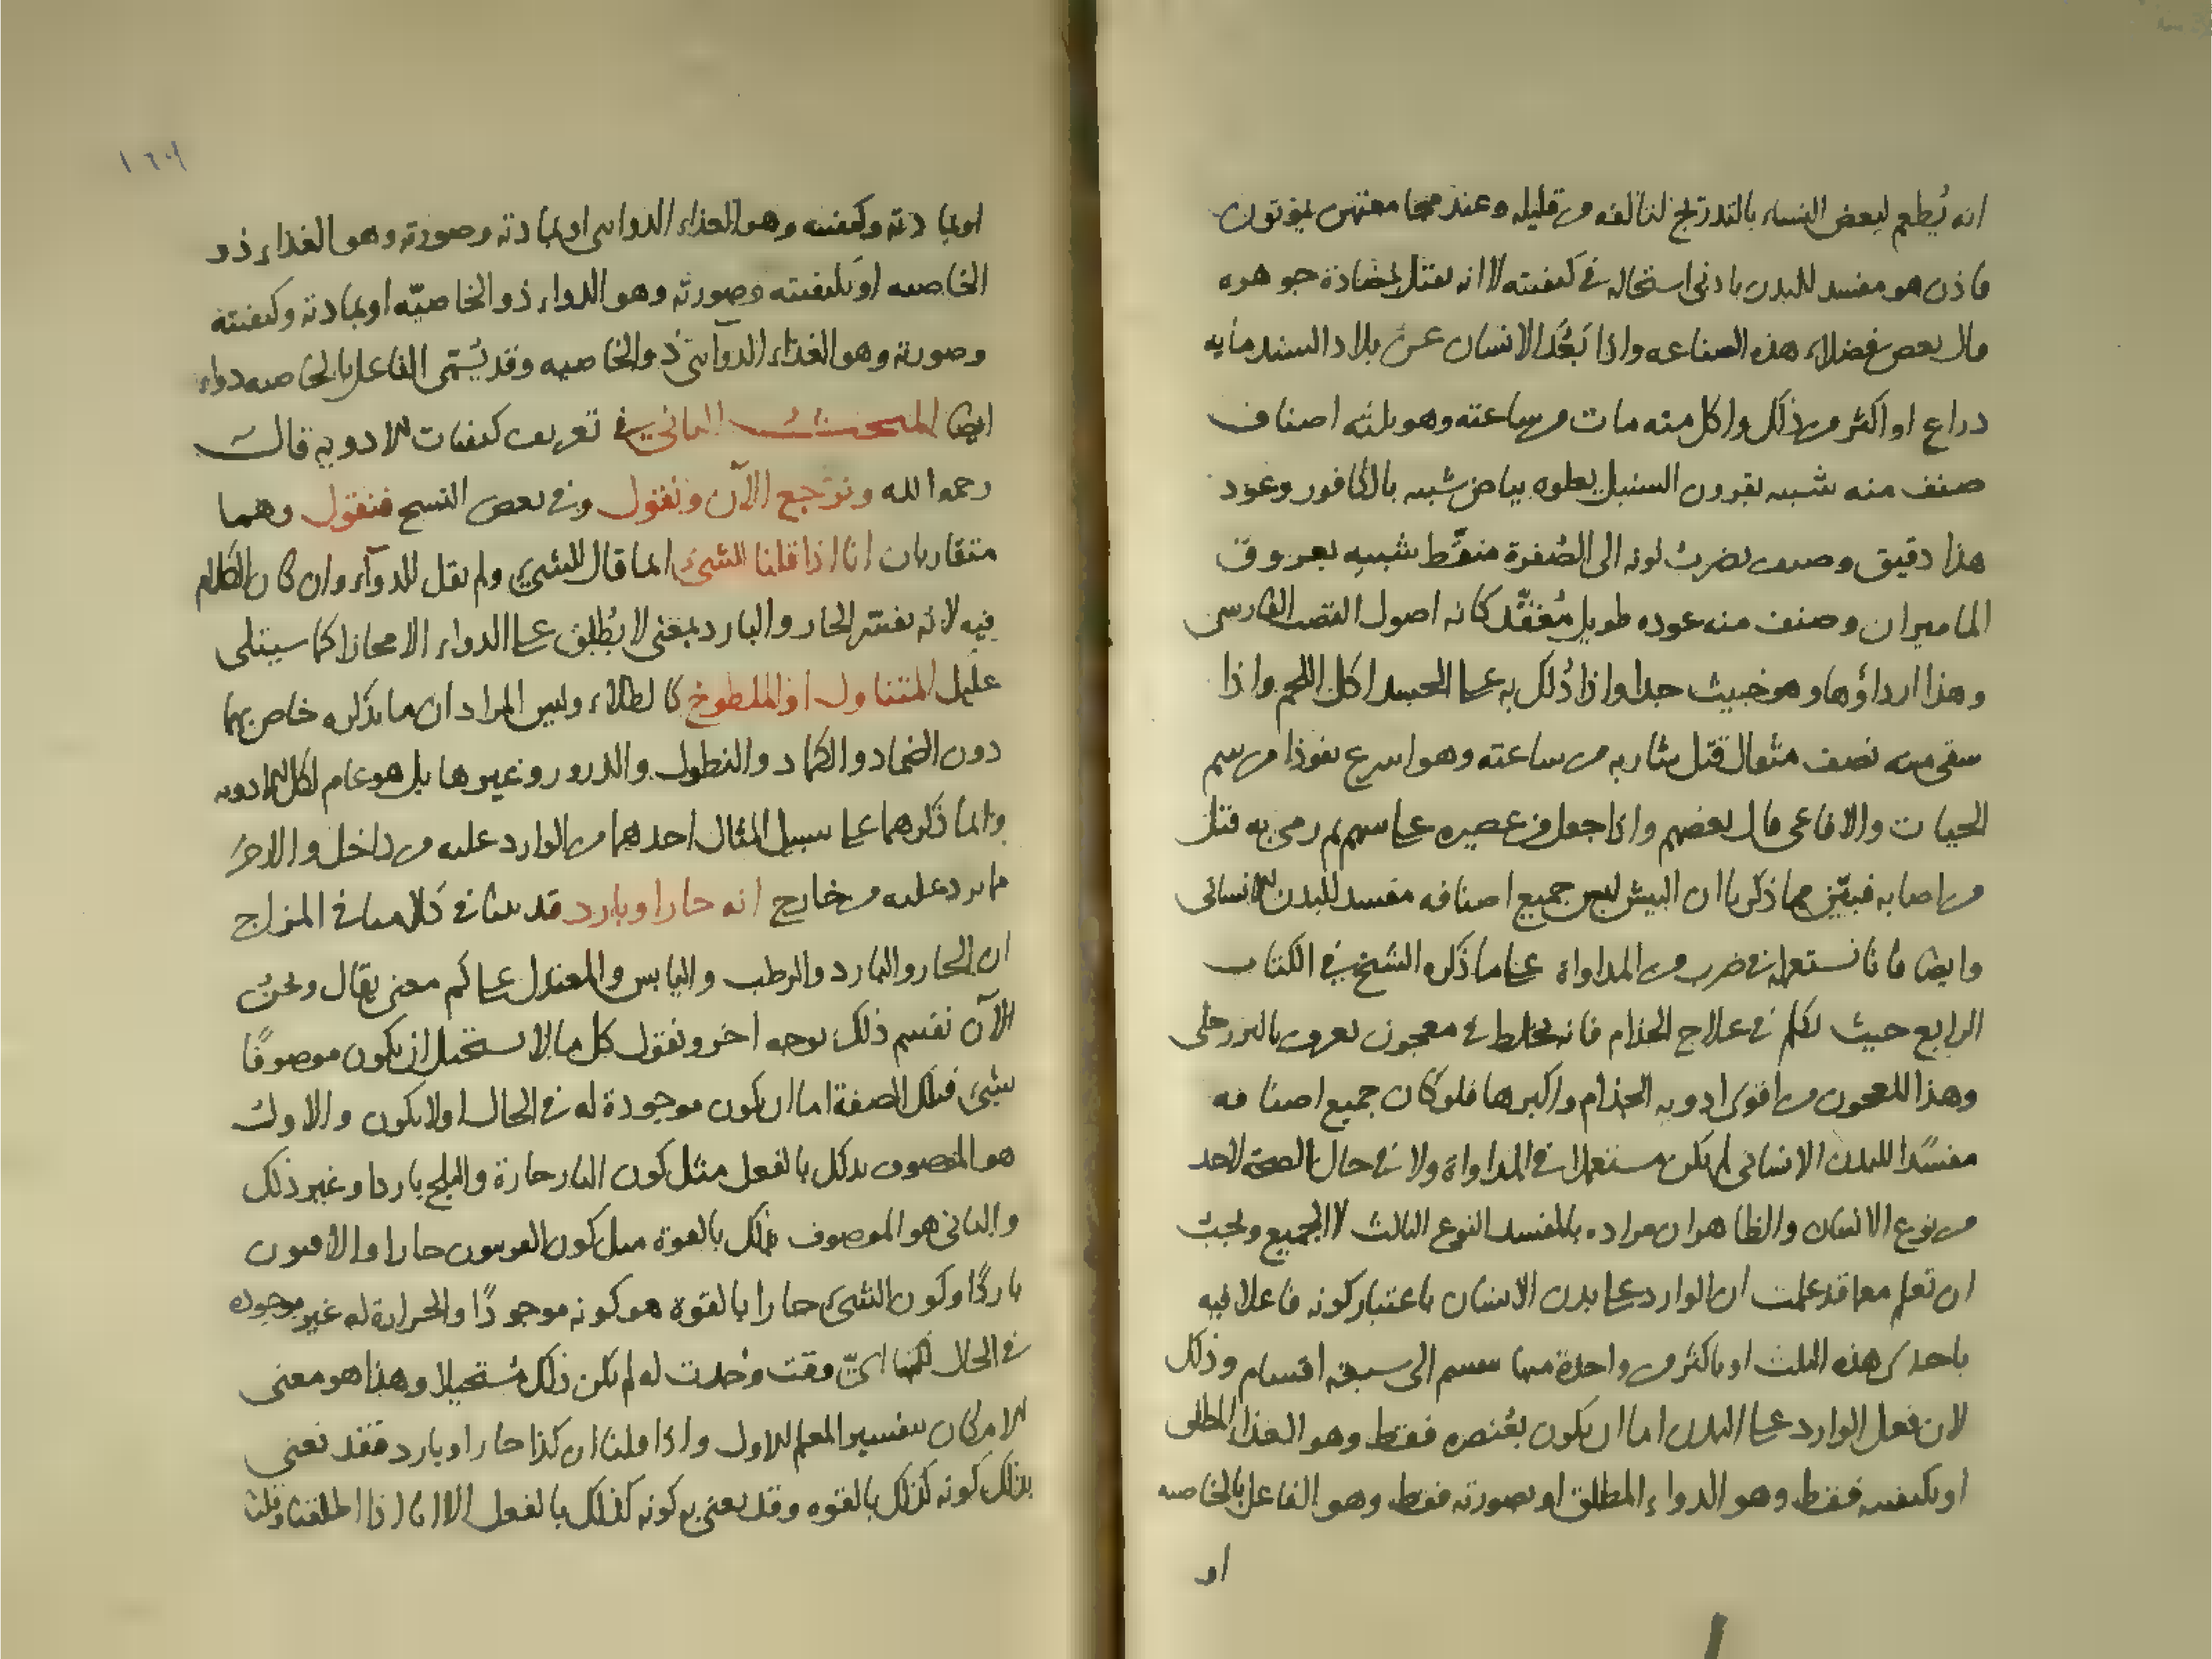 انه يُطعم لبعض النساء بالتدريج لتالفه من قليله وعند مجامعتهن يموتون
فاذن هو مفسد للبدن بادنى استحاله في كيفيته لا انه يقتل بمضادة جوهره
قال بعض فضلاء هذه الصناعه واذا بَعُدَ الانسان عن بلاد السند مايه
دراع او اكثر من ذلك واكل منه مات من ساعته وهو ثلثه اصناف
صنف منه شبيه بقرون السنبل يعلوه بياض شبيه بالكافور وعود
هذا دقيق وصنف يضرب لونه الى الصُفرة منقّط شبيه بعروق
الماميران وصنف منه عوده طويل مُعقّد كانه اصول القصب الفارسي
وهذا ارداؤها وهو خبيث جدا واذا دُلك به على الجسد اكل اللحم واذا
سقى منه نصف مثقال قتل شاربه من ساعته وهو اسرع نفوذا من سم
الحيات والافاعي قال بعضهم واذا جعل من عصيره على سهم ثم رمى به قتل
من اصابه فتبيّن مما ذكرنا ان البيش ليس جميع اصنافه مفسد للبدن الانساني
وايضا فانا نستعمله في ضرب من المداواة على ما ذكره الشيخ في الكتاب
الرابع حيث تكلم في علاج الجذام فانه يخلط في معجون يعرف بالبزرجلى
وهذا المعجون من اقوى ادويه الجذام واكبرها فلو كان جميع اصنافه
مفسدًا للبدن الانساني لم يكن مستعملا في المداواة ولا في حال الصحة لاحد
من نوع الانسان والظاهر ان مراده بالمفسد النوع الثالث لا الجميع ويجب
ان تعلم مما قد علمت ان الوارد على بدن الانسان باعتبار كونه فاعلا فيه
باحدى هذه الثلث او باكثر من واحدة منها ينقسم الى سبعة اقسام وذلك
لان فعل الوارد على البدن اما ان يكون بعُنصره فقط وهو الغذا المطلق
او بكيفيته فقط وهو الدواء المطلق او بصورته فقط وهو الفاعل بالخاصيه
او
او بمادته وكيفيته وهو الغذاء الدوائي او بمادته وصورته وهو الغذاء ذو
الخاصيه او بكيفيته وصورته وهو الدواء ذو الخاصيّه او بمادته وكيفيته
وصورته وهو الغذاء الدوآئي ذو الخاصيه وقد يُسَمّى الفاعل بالخاصيه دواء
ايضا المبحث الثاني في تعريف كيفيات الادويه قال
رحمه الله ونرجع الآن ونقول وفي بعض النسخ فنقول وهما
متقاربان انا اذا قلنا للشيء انما قال للشيء ولم يقل للدوآء وان كان الكلام
فيه لانه يفسّر الحار والبارد بمعنى لا يُطلق على الدواء الا مجازا كما سيتلى
عليك المتناول او الملطوخ كالطلاء وليس المراد ان ما يذكره خاص بهما
دون الضماد والكماد والنطول والذرور وغيرها بل هو عام لكل الادويه
وانما ذكرهما على سبيل المثال احدهما من الوارد عليه من داخل والاخر
ما يرد عليه من خارج انه حار او بارد قد بينا في كلامنا في المزاج
ان الحار والبارد والرطب واليابس والمعتدل على كم معنى يقال ونحن
الآن نقسم ذلك بوجه اخر ونقول كل ما لا يستحيل ان يكون موصوفًا
بشيء فتلك الصفة اما ان يكون موجودة له في الحال او لا يكون والاول
هو الموصوف بذلك بالفعل مثل كون النار حارة والثلج باردا وغير ذلك
والثاني هو الموصوف بذلك بالقوة مثل كون الفربيون حارا والافيون
باردًا وكون الشيء حارا بالقوة هو كونه موجودًا والحرارة له غير موجوده
في الحال لكنها ايّ وقت وُجدت له لم يكن ذلك مستحيلا وهذا هو معنى
الامكان بتفسير المعلم الاول واذا قلنا ان كذا حار او بارد فقد نعني
بذلك كونه كذلك بالقوه وقد يعني به كونه كذلك بالفعل الا انا اذا اطلقنا وقلنا